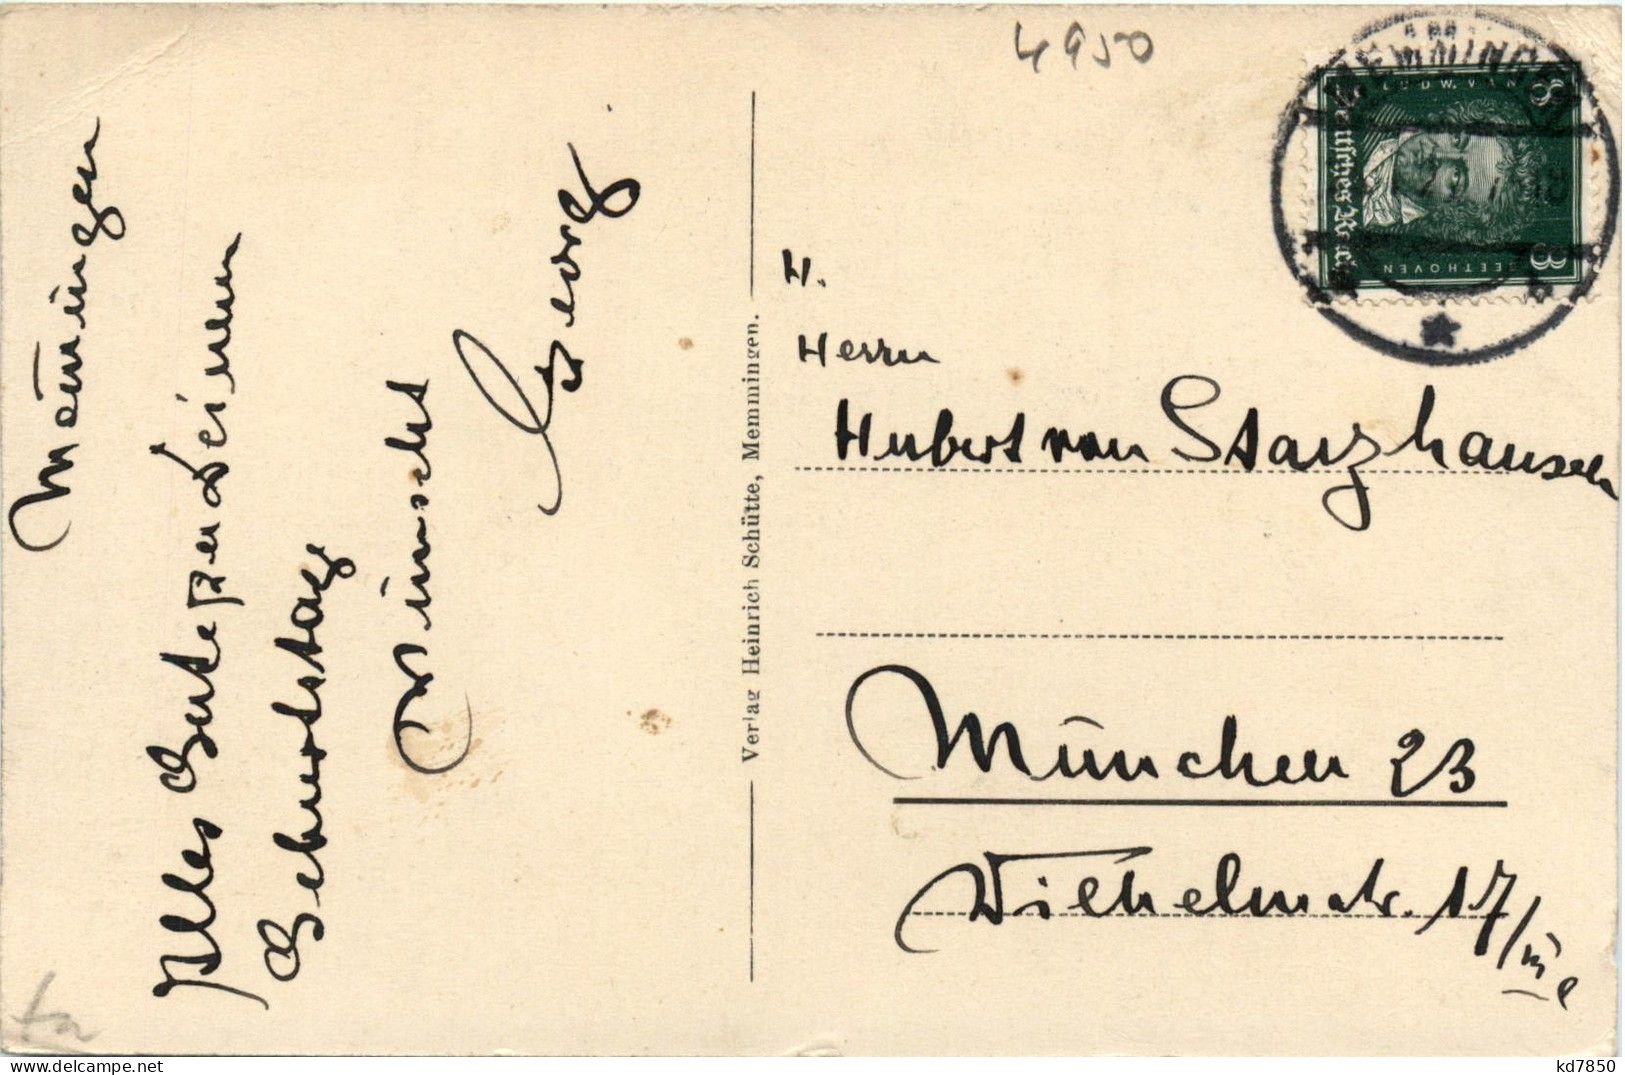 4950
Mem̄ingen
Alles Gute zu Deinem
Geburtstage
wünscht
Georg
Verlag Heinrich Schütte, Memmingen.
MEMMINGEN
LUDW. VAN
8
Deutsches Reich
8
BEETHOVEN
H.
Herrn
Hubert von Starzhausen
München 23
Wilhelmstr. 17/III e
kd7850